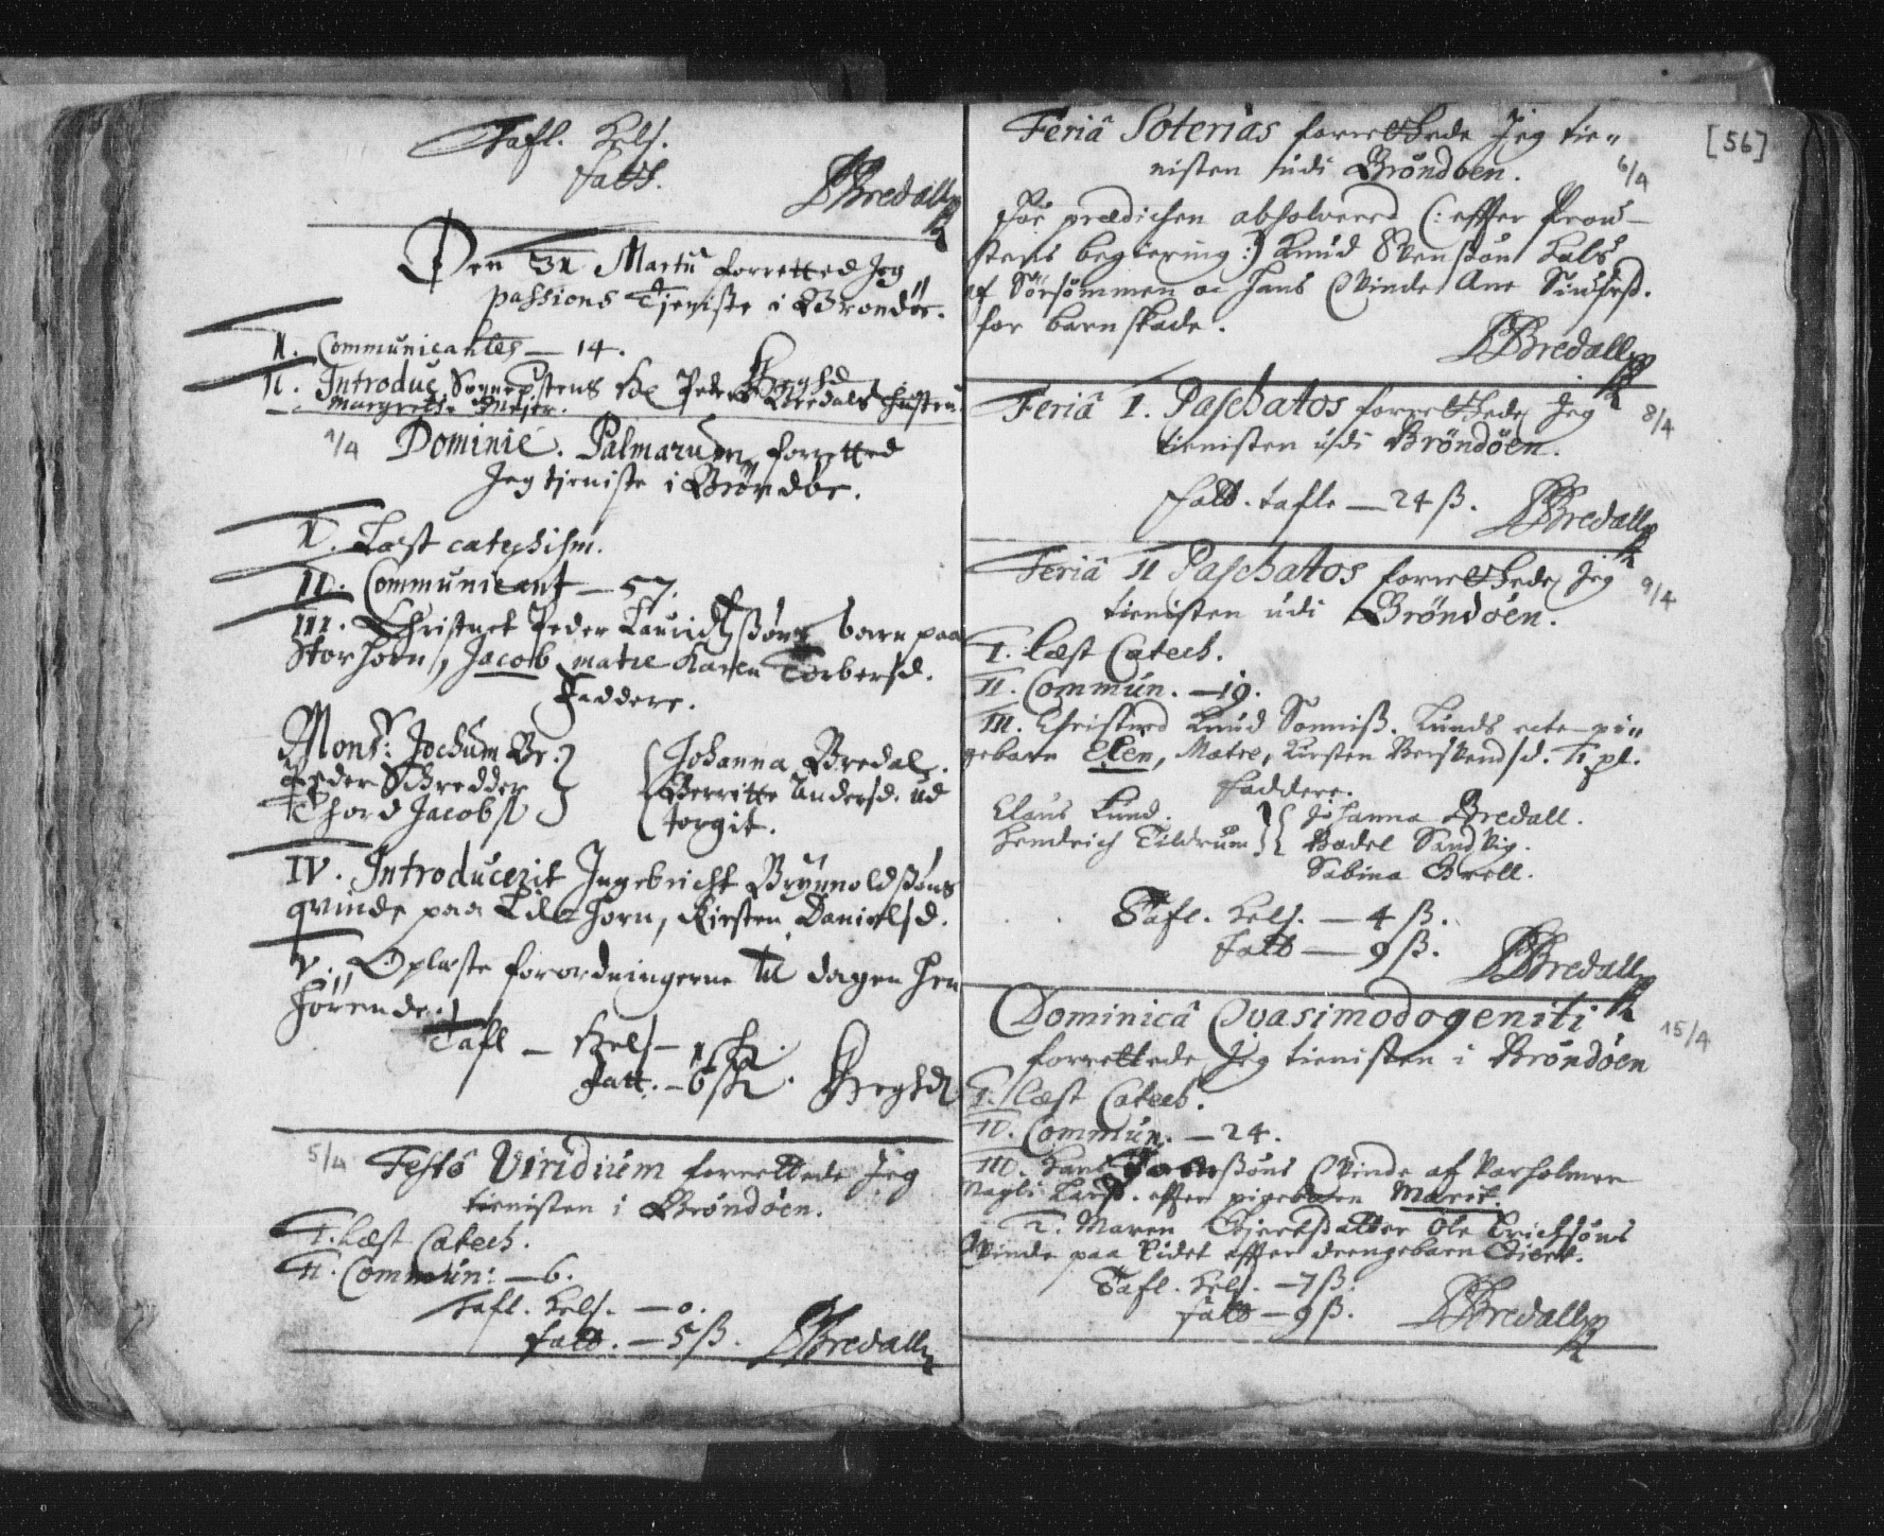 Tafl. Hels.
fatt.
PBredall
Den 31 Martii forretted Jeg
passions Tjeniste i Brondöe.
I. Communicantes — 14.
II. Introduc. Hr Peder Bredals hustru
Margrete
1/4 Dominic. Palmarum forretted
Jeg tjeniste i Bröndöe.
I. Læst catechism.
II. Communicant — 57.
III. Christnet Peder Lauridsßöns barn paa
Storhorn, Jacob matre Karen Torbersd.
Faddere.
Mons: Jochum Br:
Peder Bredder
Thord Jacobs
Johanna Bredal.
Berritte Andersd. ud
torgit.
IV. Introducerit Ingebricht Brynnoldßöns
qvinde paa Lille horn, Kirsten Danielsd.
V. Oplæste forordningerne til dagen hen
hörende.
Tafl — Hels —
Fatt. — 6 sk.
5/4 Festo Viridium forrettede Jeg
tienisten i Bröndöen.
I. Læst Catech.
II. Commun: — 6.
Tafl. Hels. — 0.
fatt. — 5 ß. PBredall
[56]
Feriâ Soterias forrettede Jeg tie„
nisten udi Bröndöen. 6/4
För prædichen absolvered (: effter Prow-
stens begiering :) Knud Svenßön Hals
af Sörsömmen oc hans Qvinde Ane
for barnskade.
PBredall
Feriâ I. Paschatos forrettede Jeg 8/4
tienisten udi Bröndöen.
Fatt. tafle — 24 ß. PBredall
Feriâ II Paschatos forrettede Jeg 9/4
tienisten udi Bröndöen.
I. Læst Catech.
II. Commun. — 19.
III. Christned Knud Sonniß. Lunds ecte pi„
gebarn Elen, Matre, Kirsten
Faddere.
Claus Lund.
Hendrich Tildrum
Johanna Bredall.
Bodel Sandvig.
Sabina Grell.
Tafl. Hels. — 4 ß.
Fatt — 9 ß. PBredall
Dominicâ Qvasimodogeniti 15/4
forrettede Jeg tienisten i Bröndöen
I. Læst Catech.
II. Commun. — 24.
III. Hans ßöns Qvinde af Vaerholmen
Magli Larsd. effter pigebarn Marit.
2. Maren Ole Erichsöns
Qvinde paa Eidet effter drengebarn
Tafl. Hels. — 7 ß.
fatt — 9 ß. PBredall